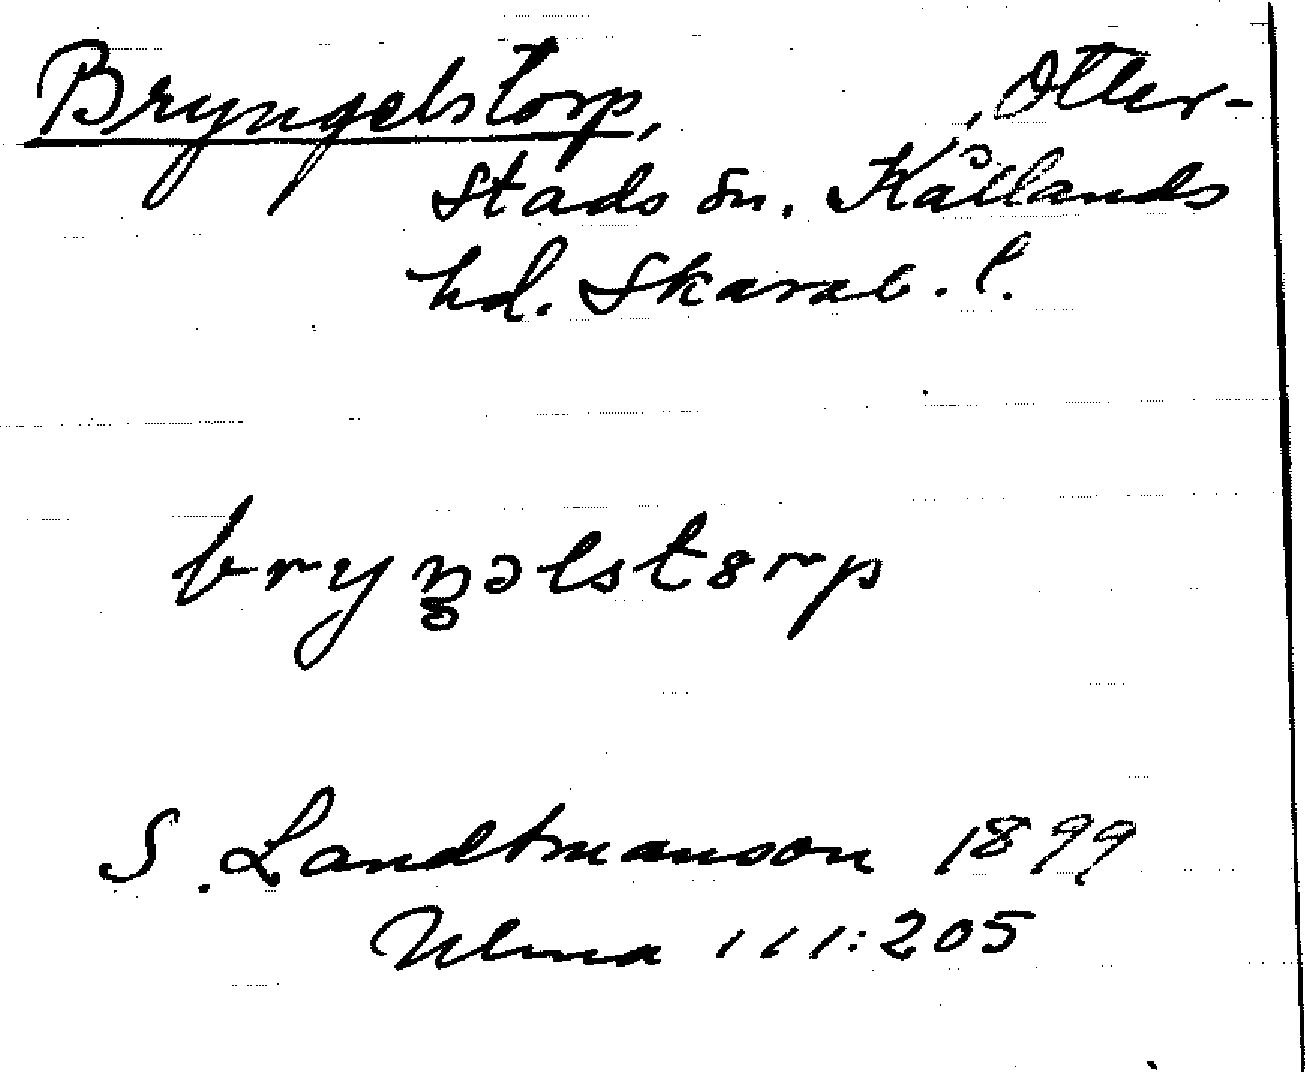 Bryngelstorp, , Otter-
stads sn. Kållands
hd. Skarab. l.
bryŋəlstorp
S. Landtmanson 1899
Ulma 111:205